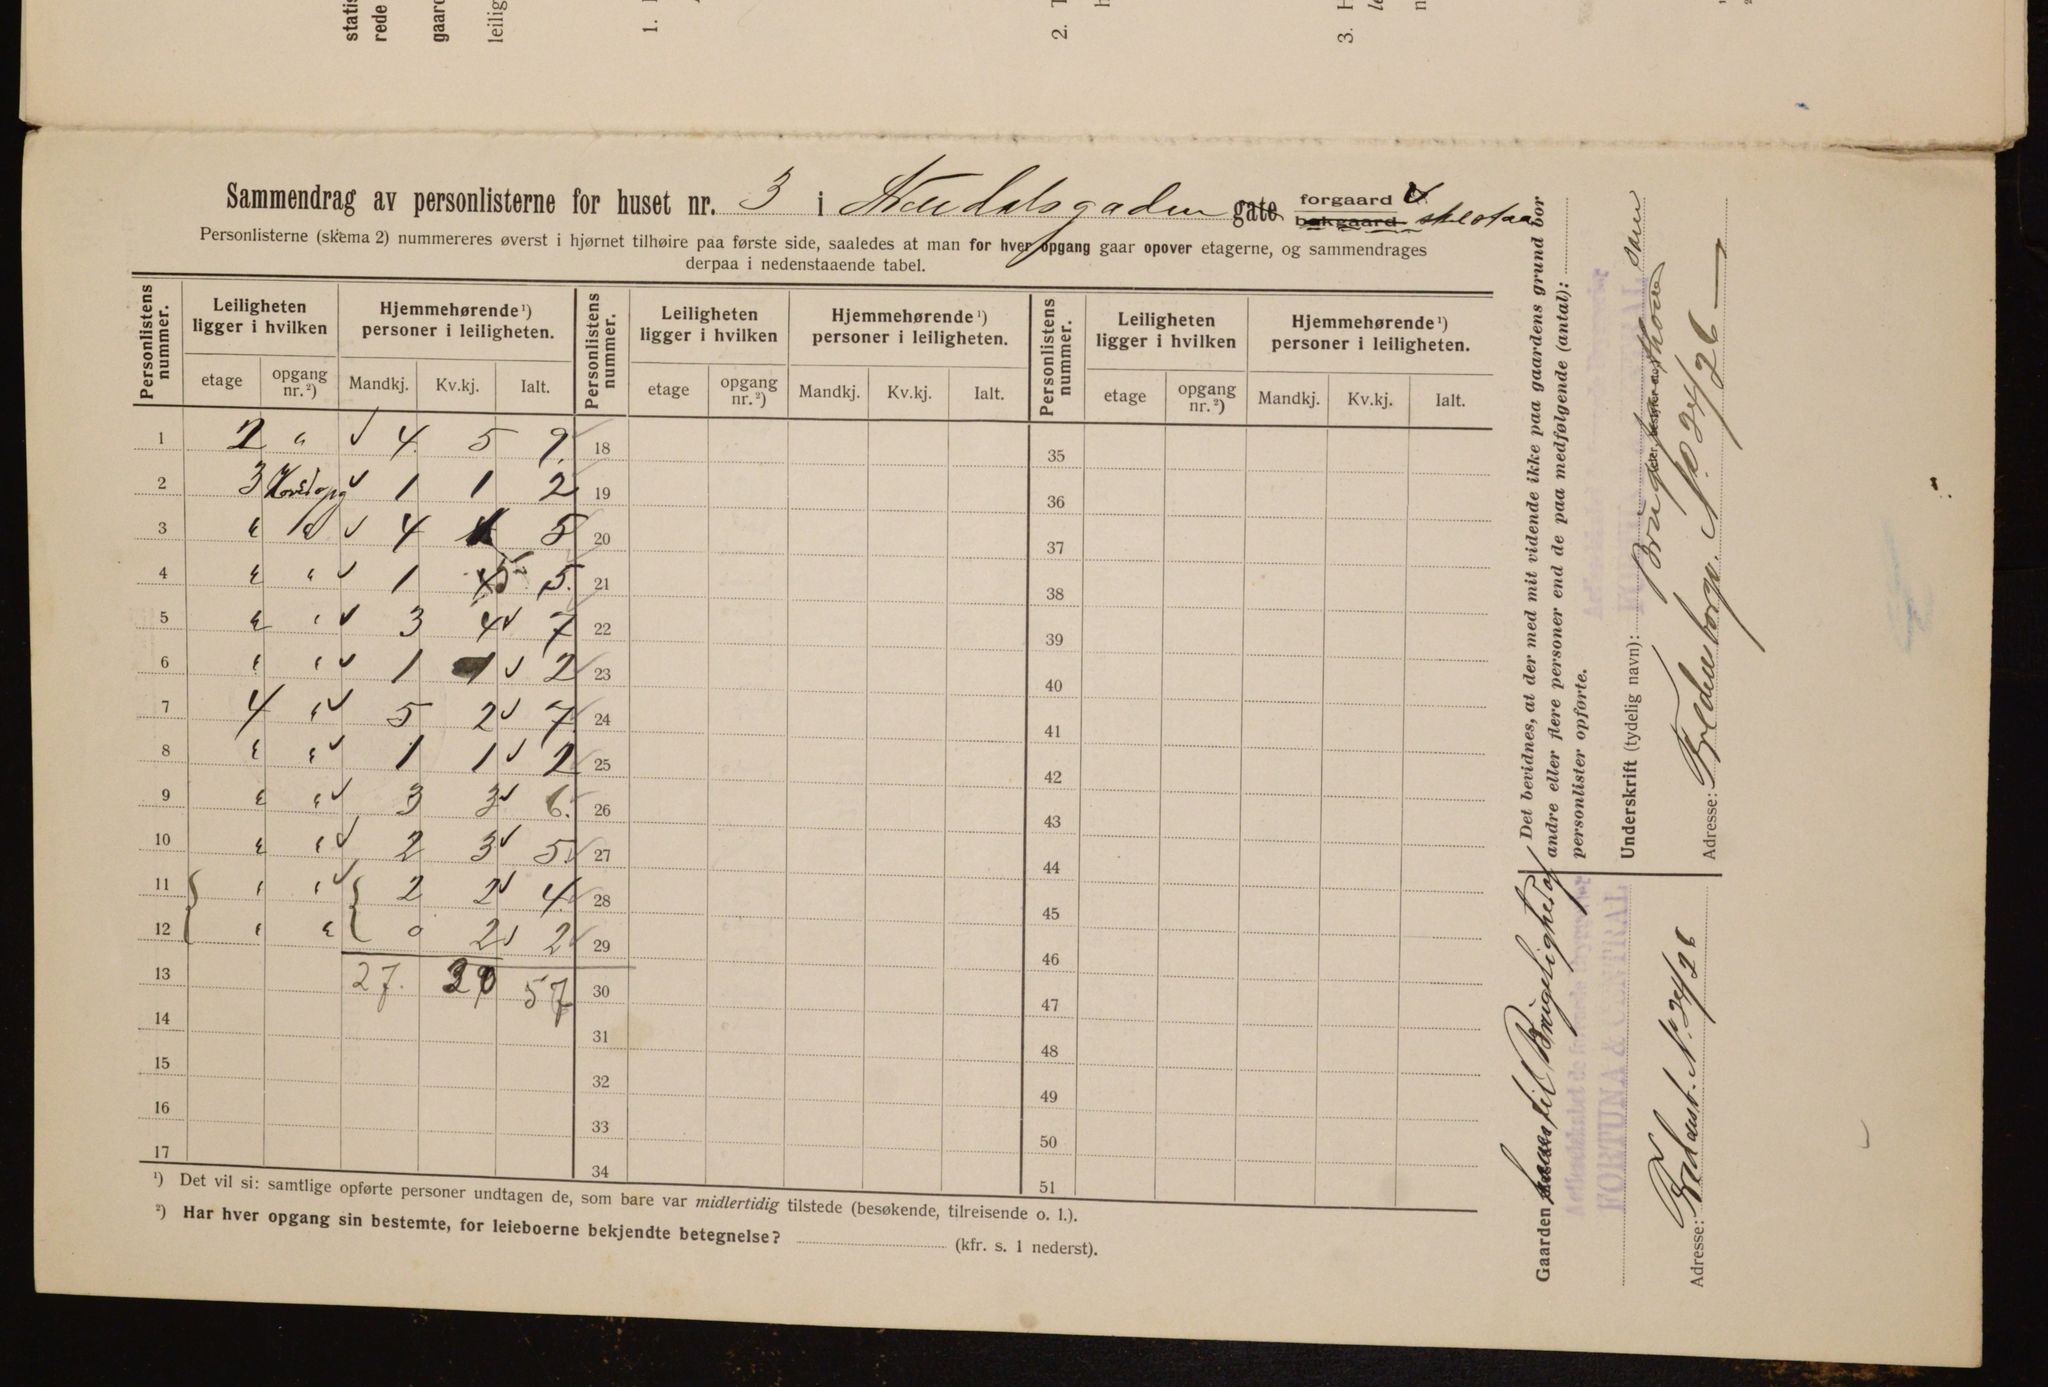 statis
rede
gaard
leilig
1.
2.
3.
Sammendrag av personlisterne for huset nr. 3 i gate forgaard
bakgaard
Personlisterne (skema 2) nummereres øverst i hjørnet tilhøire paa første side, saaledes at man for hver opgang gaar opover etagerne, og sammendrages
derpaa i nedenstaaende tabel.
Personlistens nummer. Leiligheten ligger i hvilken Hjemmehørende¹) personer i leiligheten. Personlistens nummer. Leiligheten ligger i hvilken Hjemmehørende¹) personer i leiligheten. Personlistens nummer. Leiligheten ligger i hvilken Hjemmehørende¹) personer i leiligheten.
etage opgang nr.²) Mandkj. Kv.kj. Ialt. etage opgang nr.²) Mandkj. Kv.kj. Ialt. etage opgang nr.²) Mandkj. Kv.kj. Ialt.
1 2 " 4 5 9. 18 35
2 3 1 1 2 19 36
3 " 4 1 5 20 37
4 " " 1 5 5. 21 38
5 " " 3 4 7 22 39
6 " " 1 1 2 23 40
7 4 " 5 2 7 24 41
8 " " 1 1 2 25 42
9 " " 3 3 6. 26 43
10 " " 2 3 5 27 44
11 " " 2 2 4 28 45
12 " " 0 2 2 29 46
13 27. 30 57 30 47
14 31 48
15 32 49
16 33 50
17 34 51
¹) Det vil si: samtlige opførte personer undtagen de, som bare var midlertidig tilstede (besøkende, tilreisende o. l.).
²) Har hver opgang sin bestemte, for leieboerne bekjendte betegnelse? (kfr. s. 1 nederst).
Det bevidnes, at der med mit vidende ikke paa gaardens grund bor
andre eller flere personer end de paa medfølgende (antal):
personlister opførte.
Underskrift (tydelig navn):
Adresse: No 24/26
Gaarden til
FORTUNA & CENTRAL
Adresse: No. 24/26